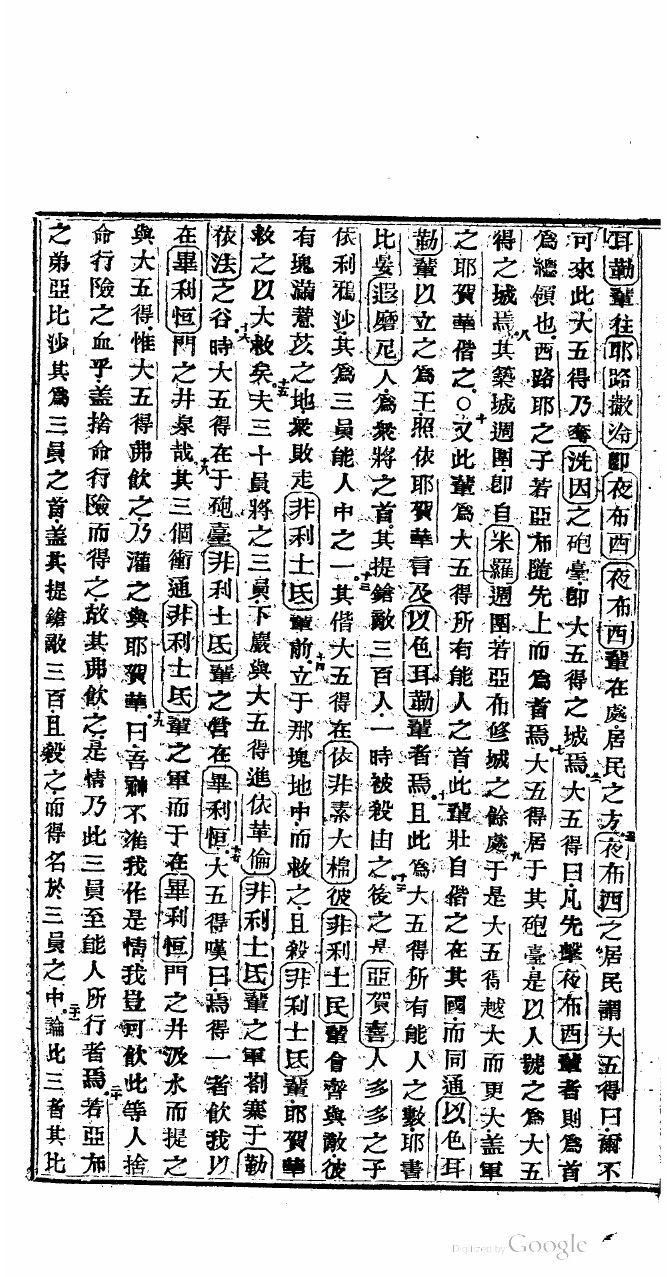 耳勒輩往耶路撒冷卽夜布西夜布西輩在處居民之方五夜布西之居民謂大五得曰爾不
可來此大五得乃奪洗因之砲臺卽大五得之城焉六大五得曰凡先擊夜布西輩者則爲首
爲總領也西路耶之子若亞布隨先上而爲首焉七大五得居于其砲臺是以人號之爲大五
得之城焉八其築城週圍卽自米羅週圍若亞布修城之餘處于是九大五得越大而更大蓋軍
之耶賀華偕之○十又此輩爲大五得所有能人之首此輩壯自偕之在其國而同通以色耳
勒輩以立之爲王照依耶賀華言及以色耳勒輩者焉十一且此爲大五得所有能人之數耶書
比晏遐磨尼人爲衆將之首其提鎗敵三百人一時被殺由之十二後之是亞賀喜人多多之子
依利鴉沙其爲三員能人中之一十三其偕大五得在依非素大棉彼非利士民輩會齊與敵彼
有塊滿薏苡之地衆敗走非利士氐輩前十四立于那塊地中而救之且殺非利士氐輩耶賀華
救之以大救矣十五夫三十員將之三員下巖與大五得進依華倫非利士氐輩之軍劄寨于勒
依法之谷十六時大五得在于砲臺非利士氐輩之營在畢利恒十七大五得嘆曰焉得一者飲我以
在畢利恒門之井泉哉十八其三個衝通非利士氐輩之軍而于在畢利恒門之井汲水而提之
與大五得惟大五得弗飲之乃灌之與耶賀華十九曰吾神不准我作是情我豈可飲此等人捨
命行險之血乎蓋捨命行險而得之故其弗飲之是情乃此三員至能人所行者焉二十若亞布
之弟亞比沙其爲三員之首蓋其提鎗敵三百且殺之而得名於三員之中二十一論此三者其比
Digitized by Google